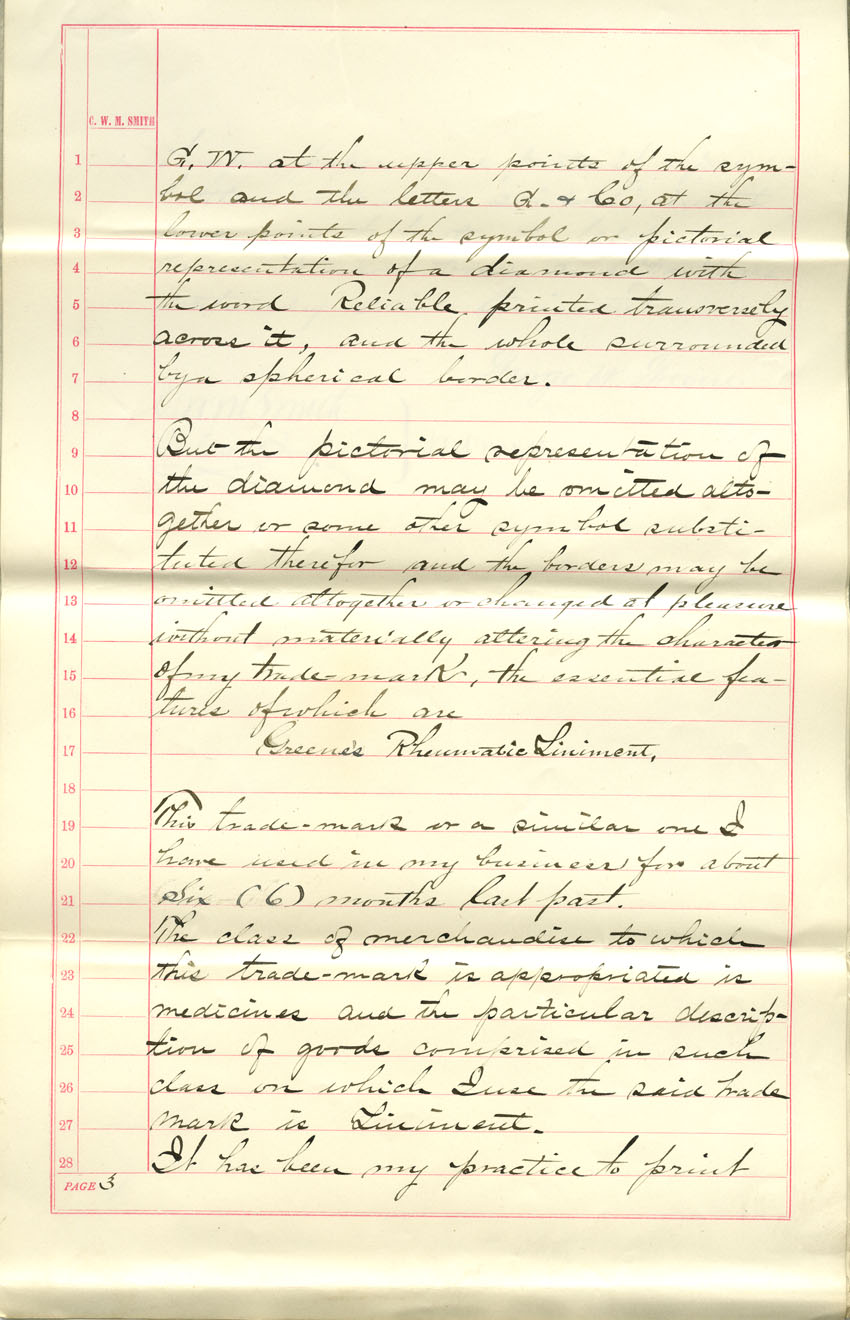 C. W. M. SMITH
1 G. W. at the upper points of the sym-
2 bol and the letters G. & Co, at the
3 lower points of the symbol or pictorial
4 representation of a diamond with
5 the word Reliable printed transversely
6 across it, and the whole surrounded
7 by a spherical border.
8
9 But the pictorial representation of
10 the diamond may be omitted alto-
11 gether or some other symbol substi-
12 tuted therefor and the borders may be
13 omitted altogether or changed at pleasure
14 without materially altering the character
15 of my trade-mark, the essential fea-
16 tures of which are
17 Greene's Rheumatic Liniment.
18
19 This trade-mark or a similar one I
20 have used in my business for about
21 Six (6) months last past.
22 The class of merchandise to which
23 this trade-mark is appropriated is
24 medicines and the particular descrip-
25 tion of goods comprised in such
26 class on which I use the said trade
27 mark is Liniment.
28 It has been my practice to print
PAGE 3